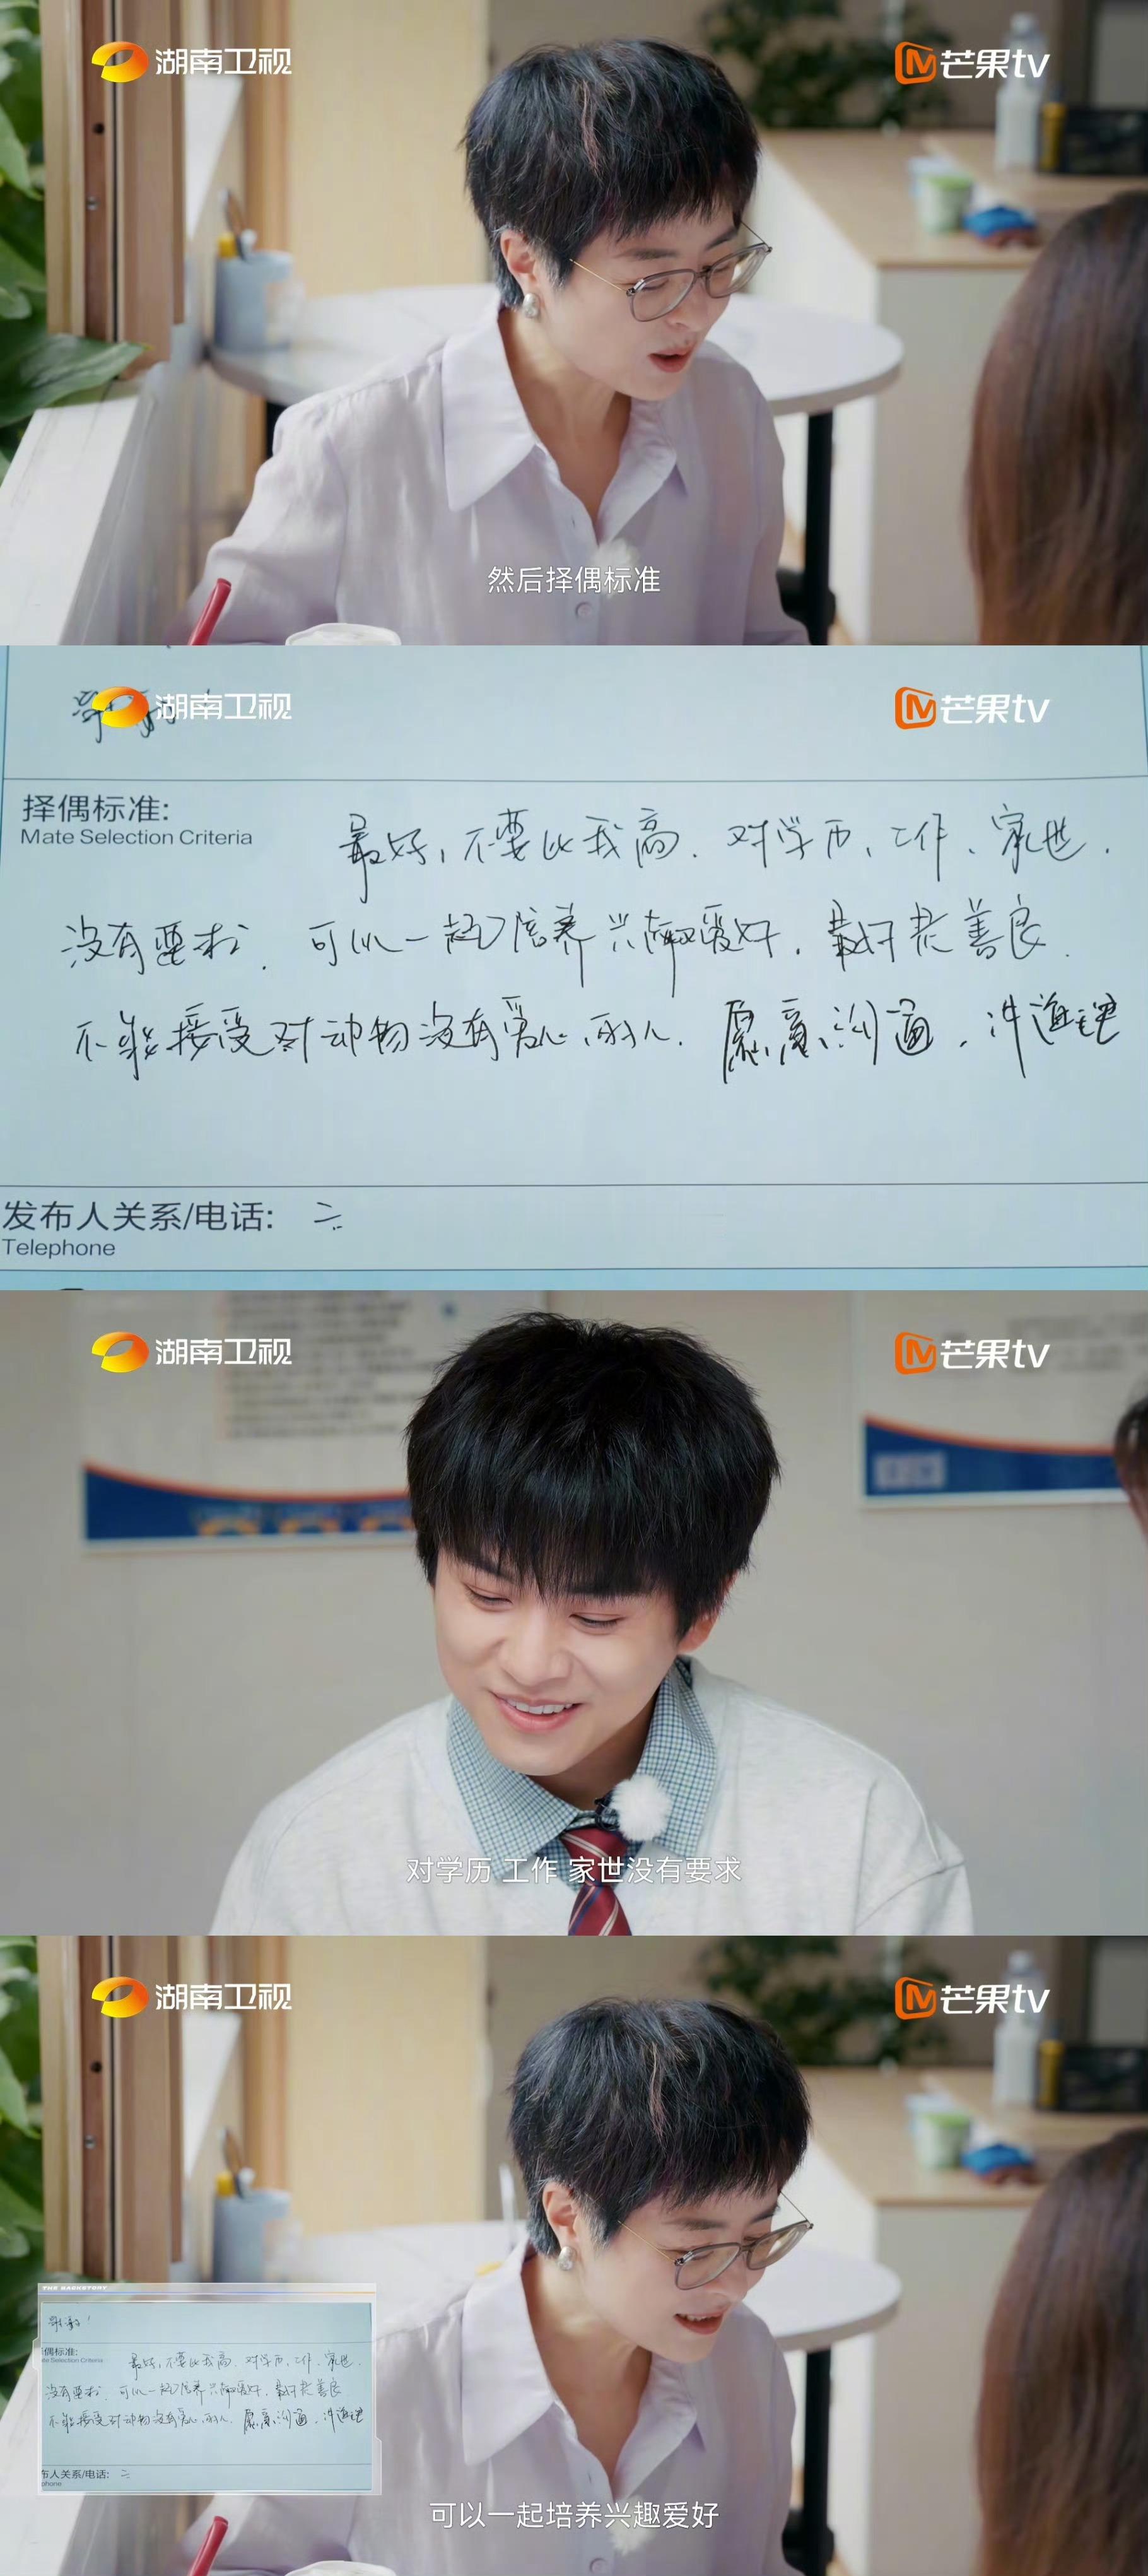 湖南卫视
芒果tv
然后择偶标准
湖南卫视
芒果tv
择偶标准:
Mate Selection Criteria
最好,不要比我高.对学历、工作、家世.
没有要求.可以一起培养兴趣爱好,最好是善良.
不能接受对动物没有爱心的人.愿意沟通,讲道理
发布人关系/电话:
Telephone
湖南卫视
芒果tv
对学历 工作 家世没有要求
湖南卫视
芒果tv
偶标准:
Selection Criteria
最好,不要比我高.对学历、工作、家世.
没有要求.可以一起培养兴趣爱好,最好是善良.
不能接受对动物没有爱心的人.愿意沟通,讲道理
布人关系/电话:
phone
可以一起培养兴趣爱好